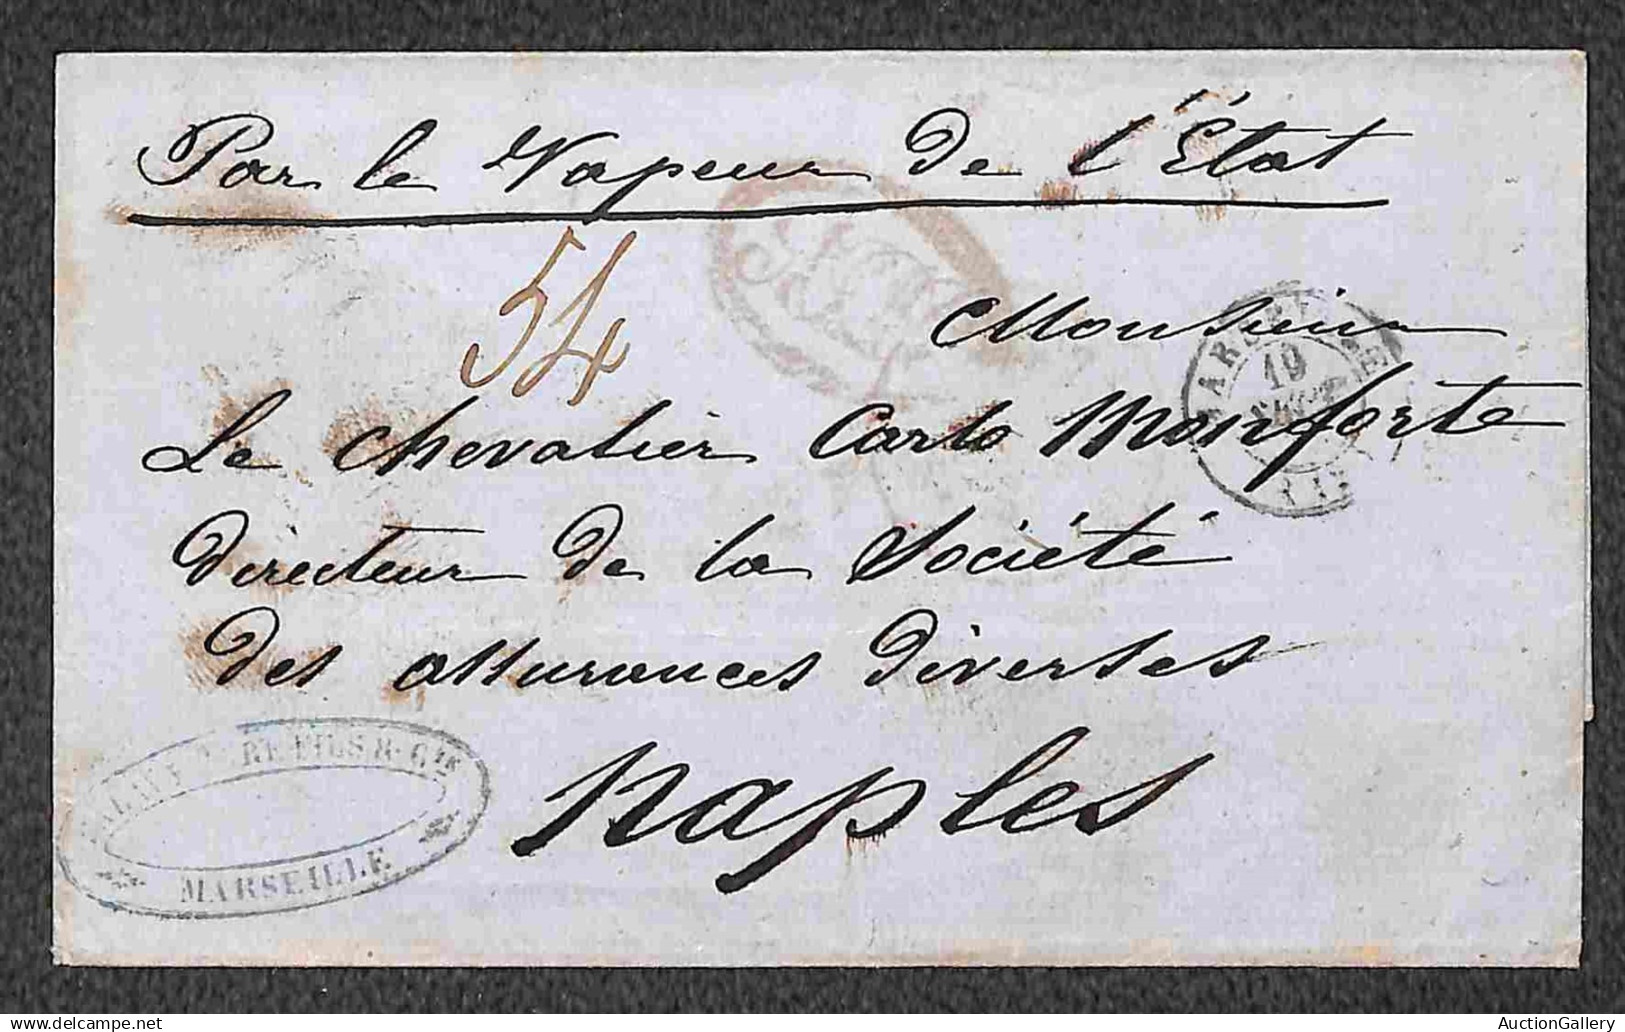 Par le Vapeur de l'État
54
Monsieur
MARSEILLE
19
Le Chevalier Carlo Monforte
directeur de la Société
des assurances diverses
Naples
FILS & CIE
MARSEILLE
delcampe.net
AuctionGallery